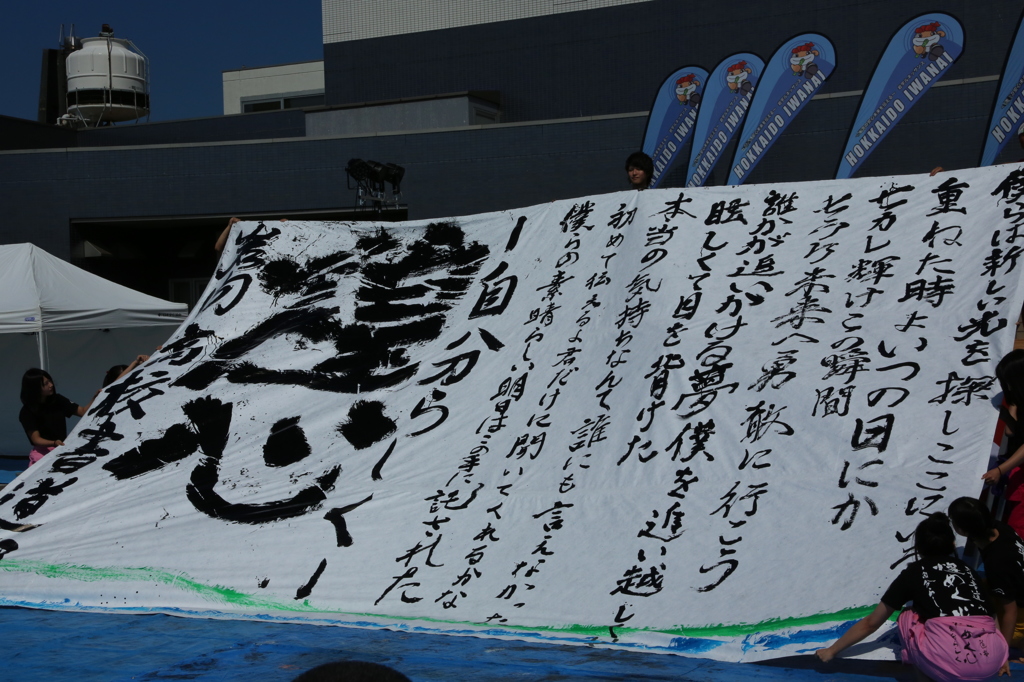 僕らは新しい光を探しここに
重ねた時よいつの日にか
サカレ輝けこの瞬間
七つの未来へ勇敢に行こう
誰かが追いかける夢僕を追い越して
眩しくて目を背けた
本当の気持ちなんて誰にも言えなかった
初めて伝えるよ君だけに聞いてくれるかな
僕らの素晴らしい明日はこの手に記された
自分らしく
岩内高校書道
HOKKAIDO IWANAI
HOKKAIDO IWANAI
HOKKAIDO IWANAI
HOKKAIDO IWANAI
HOKKAIDO IWANAI